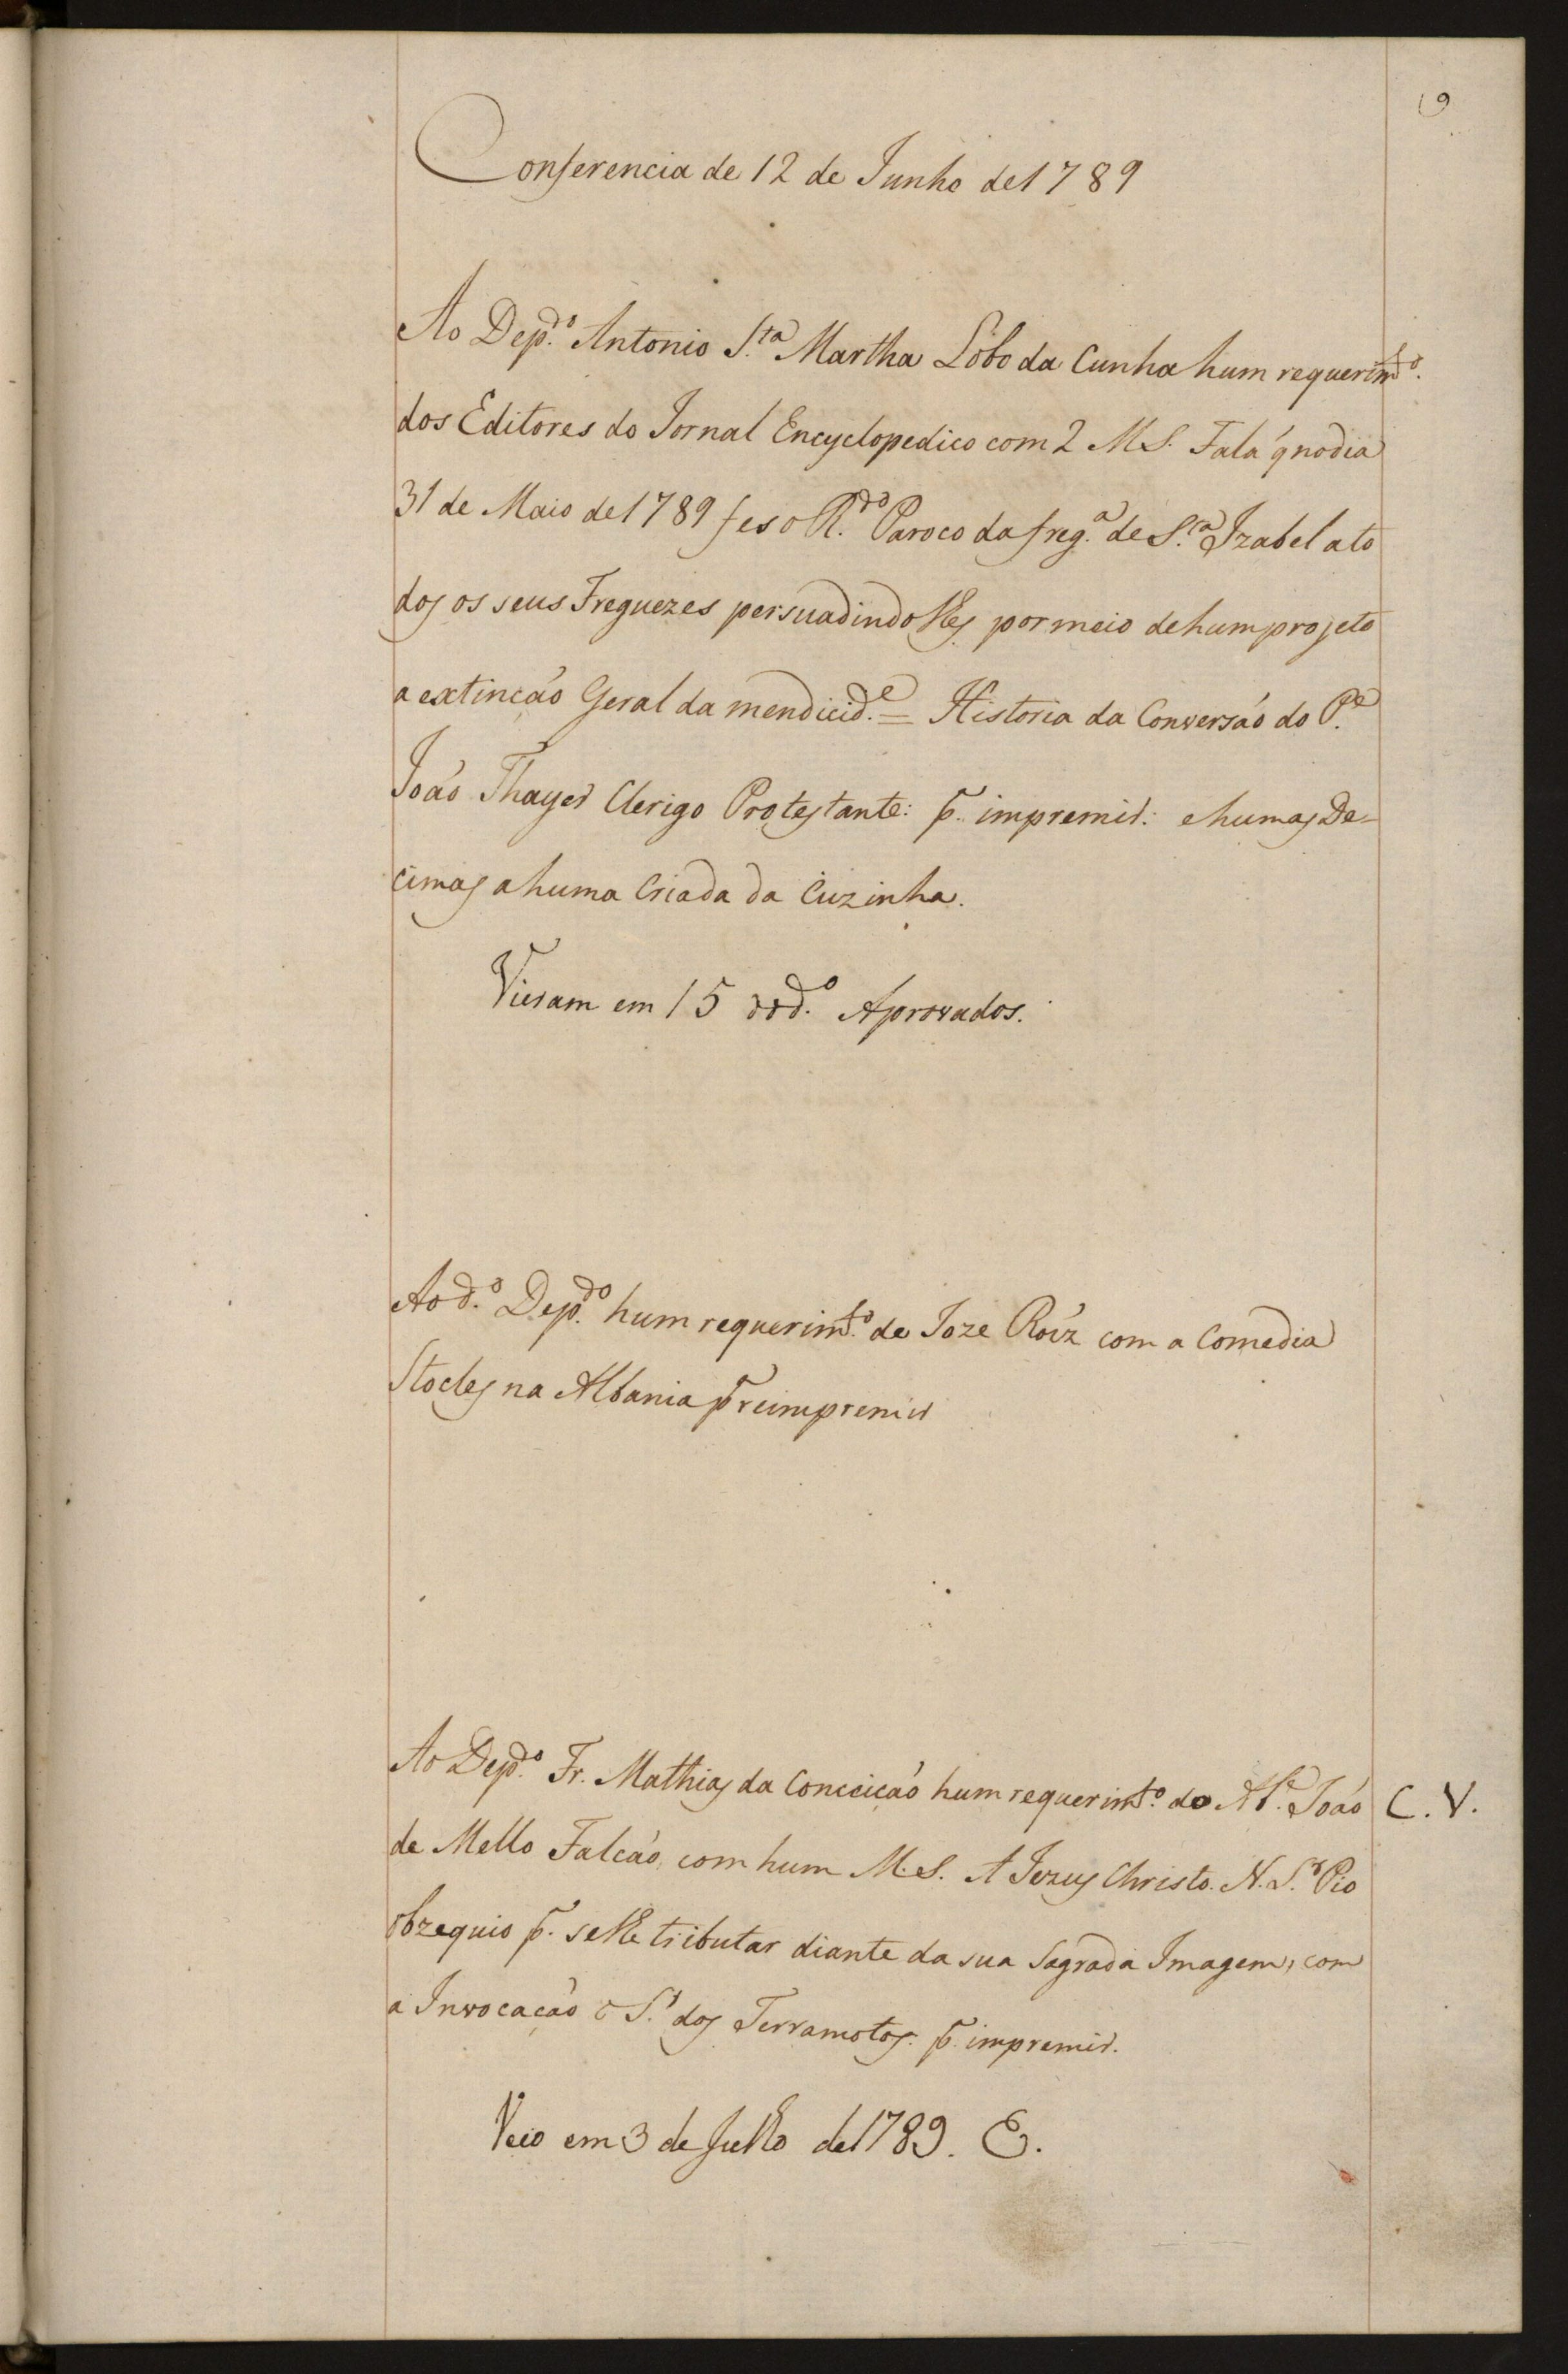 9
Conferencia de 12 de Junho de 1789
Ao Dep.do Antonio S.ta Martha Lobo da Cunha hum requerim.to
dos Editores do Jornal Encyclopedico com 2 M.S. Fala q no dia
31 de Maio de 1789 fes o R.do Paroco da freg.a de S.ta Izabel a to
dos os seus Freguezes persuadindolhes por meio de hum projeto
a extinção Geral da mendicid.e = Historia da Conversão do P.e
João Thayer Clerigo Protestante: p. impremir: e humas De-
cimas a huma Criada da Cuzinha.
Vieram em 15 do d.o Aprovados.
Ao d.o Dep.do hum requerim.to de Joze Roiz com a Comedia
Stocles na Albania p reimpremir
Ao Dep.do Fr. Mathias da Conceição hum requerim.to do Ab.e João
C. V.
de Mello Falcão, com hum M.S. A Jezus Christo N. S.r Pio
obzequio p. se lhe tributar diante da sua Sagrada Imagem, com
a Invocação S.r dos Terramotos. p. impremir.
Veio em 3 de Julho de 1789. E.